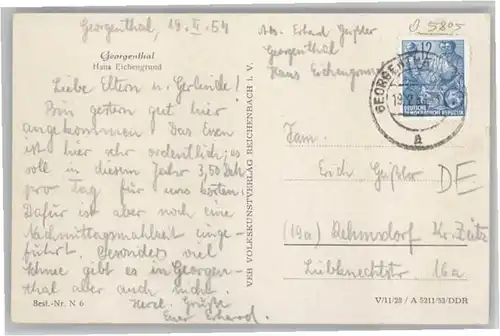 Georgenthal, 19. II. 54
Georgenthal
Haus Eichengrund
Liebe Eltern u. Gerlinde!
Bin gestern gut hier
angekommen. Das Essen
ist hier sehr ordentlich; es
soll in diesem Jahr 3,50
pro Tag für uns kosten.
Dafür ist aber noch eine
Nachmittagsmahlzeit einge-
führt. Besonders viel
Schnee gibt es in Georgen-
thal aber auch nicht.
Herzl. Grüße
Euer Erhard.
Best.-Nr. N 6
VEB VOLKSKUNSTVERLAG REICHENBACH I. V.
Abs. Erhard Geißler
Georgenthal
Haus Eichengrund
5805
12
DEUTSCHE
DEMOKRATISCHE REPUBLIK
a
Fam.
Erich Geißler
DE
(19a) Rehmsdorf Kr. Zeitz
Liebknechtstr. 16a
V/11/28 / A 5211/53/DDR